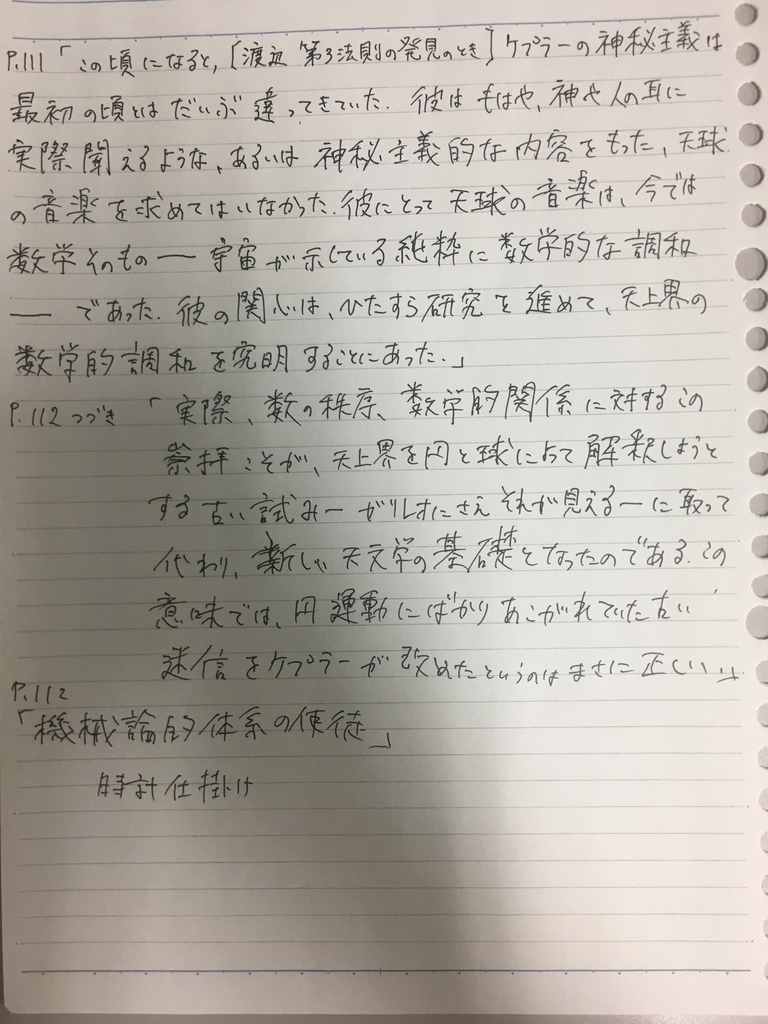 P.111 「この頃になると,[渡辺 第3法則の発見のとき]ケプラーの神秘主義は
最初の頃とはだいぶ違ってきていた. 彼はもはや,神や人の耳に
実際聞えるような、あるいは神秘主義的な内容をもった、天球
の音楽を求めてはいなかった.彼にとって天球の音楽は、今では
数学そのもの―宇宙が示している純粋に数学的な調和
―であった. 彼の関心は、ひたすら研究を進めて、天上界の
数学的調和を究明することにあった.」
P.112 つづき 「実際、数の秩序、数学的関係に対するこの
崇拝こそが、天上界を円と球によって解釈しようと
する古い試み―ガリレオにさえそれが見える―に取って
代わり、新しい天文学の基礎となったのである.この
意味では、円運動にばかりあこがれていた古い
迷信をケプラーが改めたというのはまさに正しい.」
P.112
「機械論的体系の使徒」
時計仕掛け